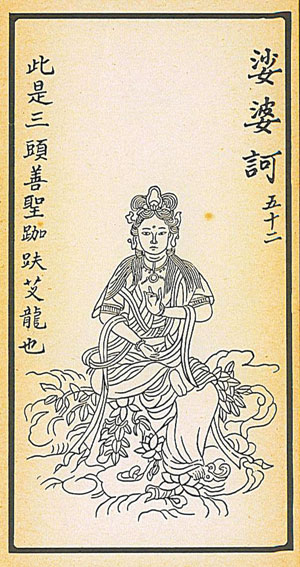 娑婆訶 五十二
此是三頭善聖跏趺艾龍也